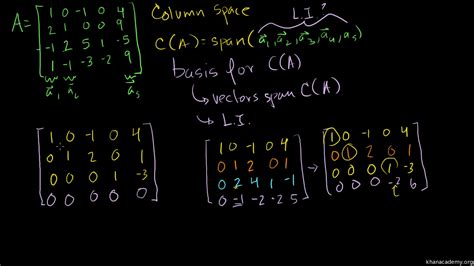 A = [1 0 -1 0 4
2 1 0 0 9
-1 2 5 1 -5
1 -1 -3 -2 9]
a⃗₁ a⃗₂ a⃗₅
Column space
L.I?
C(A) = span(a⃗₁, a⃗₂, a⃗₃, a⃗₄, a⃗₅)
basis for C(A)
↳ vectors span C(A)
↳ L.I.
[1 0 -1 0 4
0 1 2 0 1
0 0 0 1 -3
0 0 0 0 0]
[1 0 -1 0 4
0 1 2 0 1
0 2 4 1 -1
0 -1 -2 -2 5]
→
[1 0 -1 0 4
0 1 2 0 1
0 0 0 1 -3
0 0 0 -2 6]
khanacademy.org